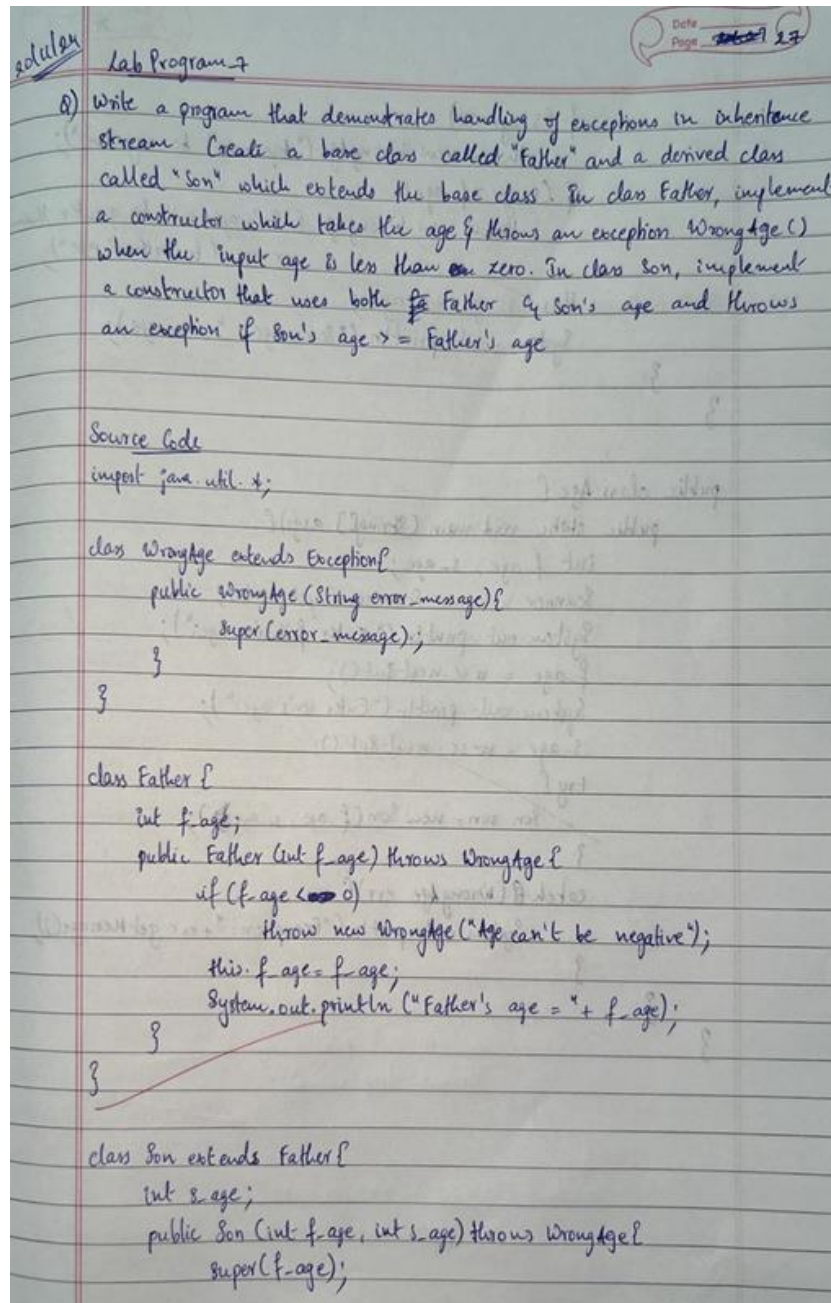 Date
Page 27
Lab Program-7
Q) Write a program that demontrates handling of exceptions in inheritance
stream. Create a base class called "Father" and a derived class
called "Son" which extends the base class. In class Father, implement
a constructor which takes the age & throws an exception WrongAge()
when the input age is less than zero. In class Son, implement
a constructor that uses both Father & Son's age and throws
an exception if Son's age >= Father's age
Source Code
import java.util.*;
class WrongAge extends Exception{
public WrongAge (String error_message){
super(error_message);
}
}
class Father {
int f_age;
public Father (int f_age) throws WrongAge {
if (f_age < 0)
throw new WrongAge ("Age can't be negative");
this.f_age = f_age;
System.out.println ("Father's age = "+ f_age);
}
}
class Son extends Father{
int s_age;
public Son (int f_age, int s_age) throws WrongAge{
super(f_age);